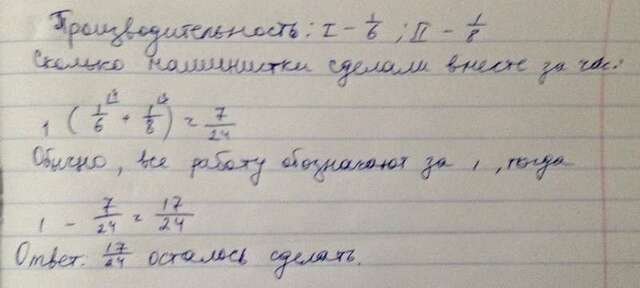 Производительность: I - 1/6 ; II - 1/8
Сколько машинистки сделали вместе за час:
1 ( 1/6 + 1/8 ) = 7/24
Обычно, все работу обозначают за 1, тогда
1 - 7/24 = 17/24
Ответ. 17/24 осталось сделать.